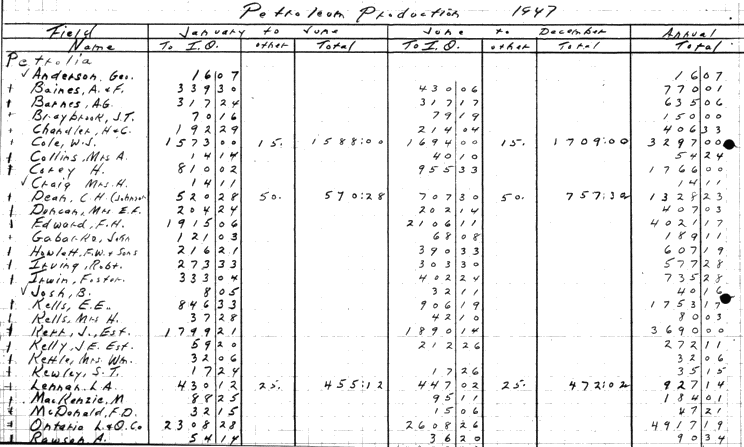 Petroleum Production 1947
Field January to June June to December Annual
Name To I.O. other Total To I.O. other Total Total
Petrolia
√ Anderson, Geo. 1607 1607
+ Baines, A. & F. 33930 43006 77001
+ Barnes, A.G. 31724 31717 63506
+ Braybrook, J.T. 7016 7919 15000
+ Chandler, H & C. 19229 21404 40633
+ Cole, W.J. 157300 15. 1588:00 169400 15. 1709:00 329700
+ Collins, Mrs A. 1414 4010 5424
+ Corey H. 81002 95533 176600
√ Craig Mrs. H. 1411 1411
+ Dean, C.H. (Johnson 52028 50. 570:28 70730 50. 757:30 132823
+ Duncan, Mrs E.F. 20424 20214 40703
+ Edward, F.H. 191506 210611 402117
+ Gabarko, John 12103 6808 18911
+ Howlett, F.W. & Sons 21621 39033 60719
+ Irving, Robt. 27333 30330 57728
+ Irwin, Foster. 33304 40224 73528
√ Josh, B. 805 3211 4016
+ Kells, E.E. 84633 90619 175317
+ Kells, Mrs H. 3728 4210 8003
+ Kerr, J., Est. 179921 189014 369000
+ Kelly, J.E. Est. 5920 21226 27211
+ Kettle, Mrs. Wm. 3206 3206
+ Kewley, S.T. 1724 1726 3515
+ Lennan, L.A. 43012 25. 455:12 44702 25. 472:02 92714
+ MacKenzie, M 8825 9511 18401
+ McDonald, F.D. 3215 1506 4721
+ Ontario L. & O. Co 230828 260826 491719
+ Rawson, A. 5414 3620 9034